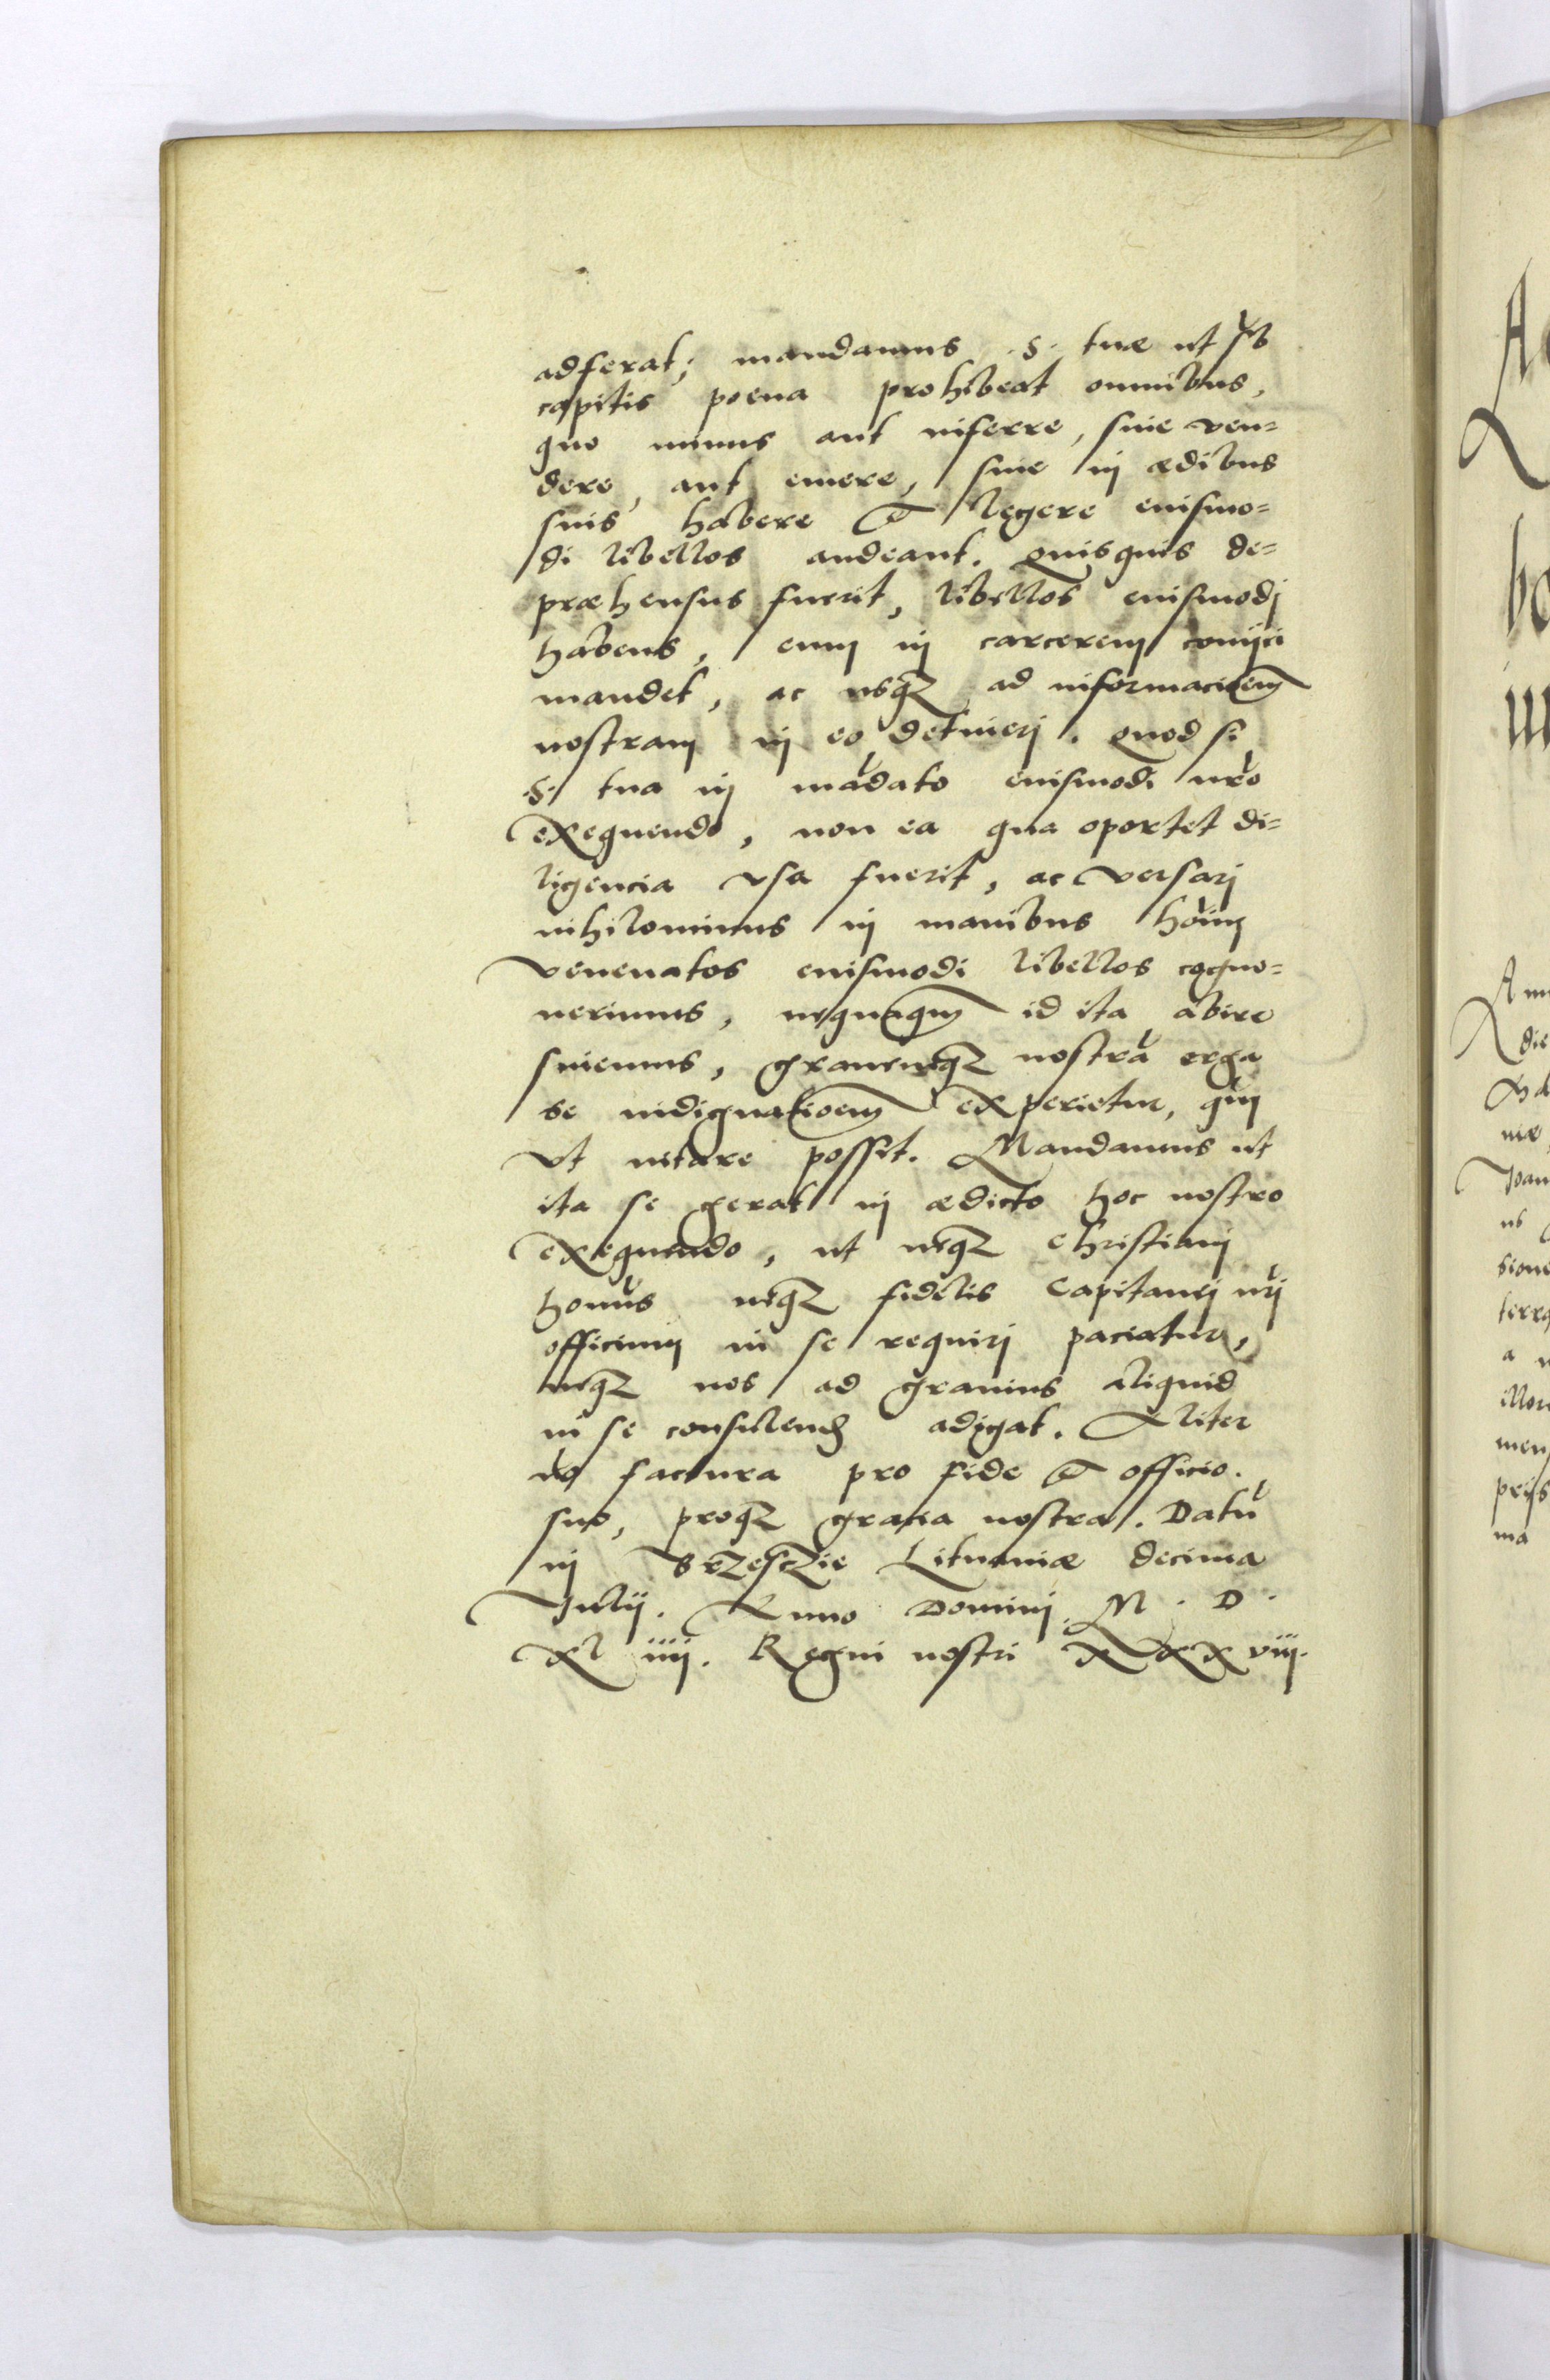 adferat; mandamus .S. tuæ ut sb
capitis poena prohibeat omnibus,
quo minus aut inferre, siue ven=
dere, aut emere, siue in ædibus
suis habere & legere eiusmo=
di libellos audeant. Quisquis de=
præhensus fuerit, libellos eiusmodj
habens, eum in carcerem conijci
mandet, ac usqz ad informacioem
nostram in eo detinerj. Quod si
.S. tua in mādato eiusmodi nr̄o
exequendo, non ea qua oportet di=
ligencia vsa fuerit, ac versarj
nihilominus in manibus hoīm
venenatos eiusmodi libellos cogno=
uerimus, nequaqm id ita abire
sinemus, grauemqz nostrā erga
se indignatioem experietur, qm̄
vt uitare possit. Mandamus ut
ita se gerat in ædicto hoc nostro
exequendo, ut neqz Christianj
homīs neqz fidelis Capitanej nr̄j
officium in se requirj paciatur,
neqz nos ad grauius aliquid
in se consulend adigat. Aliter
no factura pro fide & officio.
suo, proqz gracia nostra. Datū
in Brzesczie Lituaniæ decima
Julij. Anno Domini. M. D.
XL iiij. Regni nostri XXXviij.
A
L
A
die